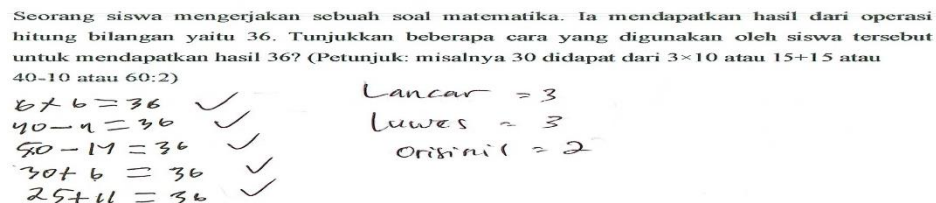 Seorang siswa mengerjakan sebuah soal matematika. Ia mendapatkan hasil dari operasi
hitung bilangan yaitu 36. Tunjukkan beberapa cara yang digunakan oleh siswa tersebut
untuk mendapatkan hasil 36? (Petunjuk: misalnya 30 didapat dari 3×10 atau 15+15 atau
40-10 atau 60:2)
6 × 6 = 36 ✓
40 - 4 = 36 ✓
50 - 14 = 36 ✓
30 + 6 = 36 ✓
25 + 11 = 36 ✓
Lancar = 3
Luwes = 3
Orisinil = 2